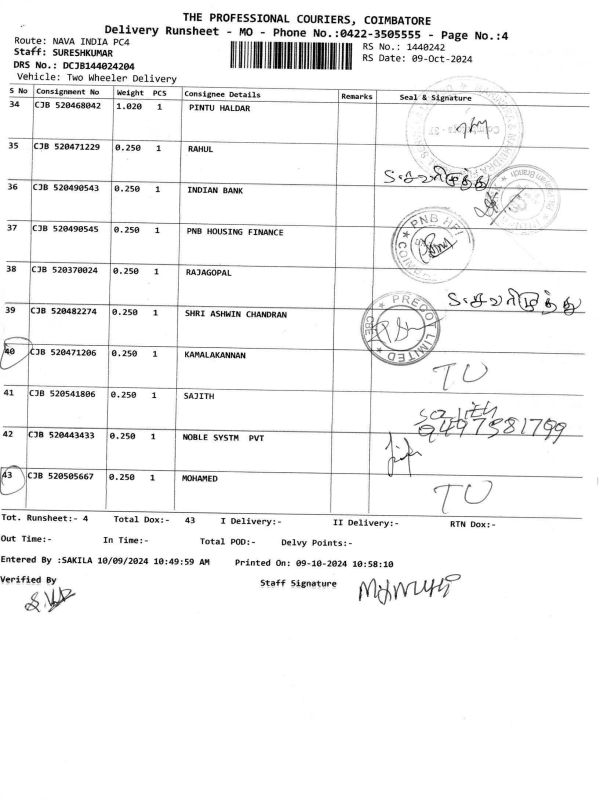 THE PROFESSIONAL COURIERS, COIMBATORE
Delivery Runsheet - MO - Phone No.:0422-3505555 - Page No.:4
Route: NAVA INDIA PC4
RS No.: 1440242
Staff: SURESHKUMAR
RS Date: 09-Oct-2024
DRS No.: DCJB144024204
Vehicle: Two Wheeler Delivery
S No Consignment No Weight PCS Consignee Details Remarks Seal & Signature
34 CJB 520468042 1.020 1 PINTU HALDAR
35 CJB 520471229 0.250 1 RAHUL
36 CJB 520490543 0.250 1 INDIAN BANK
37 CJB 520490545 0.250 1 PNB HOUSING FINANCE
PNB HFL
38 CJB 520370024 0.250 1 RAJAGOPAL
39 CJB 520482274 0.250 1 SHRI ASHWIN CHANDRAN
PRECOT LIMITED
CBE
40 CJB 520471206 0.250 1 KAMALAKANNAN TU
41 CJB 520541806 0.250 1 SAJITH
9497581799
42 CJB 520443433 0.250 1 NOBLE SYSTM PVT
43 CJB 520505667 0.250 1 MOHAMED TU
Tot. Runsheet:- 4 Total Dox:- 43 I Delivery:- II Delivery:- RTN Dox:-
Out Time:- In Time:- Total POD:- Delvy Points:-
Entered By :SAKILA 10/09/2024 10:49:59 AM Printed On: 09-10-2024 10:58:10
Verified By Staff Signature